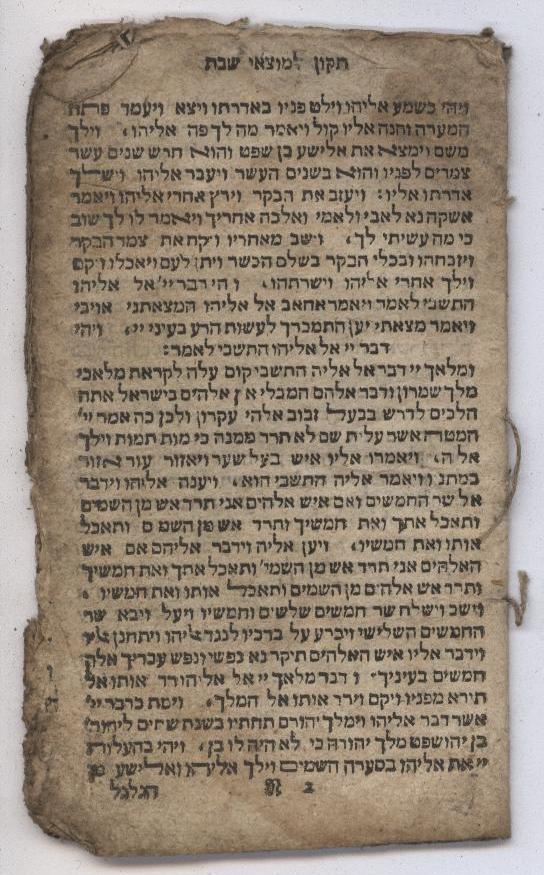 תקון למוצאי שבת
ויהי כשמע אליהו וילט פניו באדרתו ויצא ויעמד פתח
המערה והנה אליו קול ויאמר מה לך פה אליהו׃ וילך
משם וימצא את אלישע בן שפט והוא חרש שנים עשר
צמדים לפניו והוא בשנים העשר ויעבר אליהו וישלך
אדרתו אליו׃ ויעזב את הבקר וירץ אחרי אליהו ויאמר
אשקה נא לאבי ולאמי ואלכה אחריך ויאמר לו לך שוב
כי מה עשיתי לך׃ וישב מאחריו ויקח את צמד הבקר
ויזבחהו ובכלי הבקר בשלם הבשר ויתן לעם ויאכלו ויקם
וילך אחרי אליהו וישרתהו׃ ויהי דבר יי׳ אל אליהו
התשבי לאמר ויאמר אחאב אל אליהו המצאתני אויבי
ויאמר מצאתי יען התמכרך לעשות הרע בעיני יי׳׃ ויהי
דבר יי׳ אל אליהו התשבי לאמר׃
ומלאך יי׳ דבר אל אליה התשבי קום עלה לקראת מלאכי
מלך שמרון ודבר אלהם המבלי אין אלהים בישראל אתה
הלכים לדרש בבעל זבוב אלהי עקרון ולכן כה אמר יי׳
המטה אשר עלית שם לא תרד ממנה כי מות תמות וילך
אליה׃ ויאמרו אליו איש בעל שער ואזור עור אזור
במתניו ויאמר אליה התשבי הוא׃ ויענה אליהו וידבר
אל שר החמשים ואם איש אלהים אני תרד אש מן השמים
ותאכל אתך ואת חמשיך ותרד אש מן השמים ותאכל
אותו ואת חמשיו׃ ויען אליה וידבר אליהם אם איש
האלהים אני תרד אש מן השמי׳ ותאכל אתך ואת חמשיך
ותרד אש אלהים מן השמים ותאכל אותו ואת חמשיו׃
וישב וישלח שר חמשים שלשים וחמשיו ויעל ויבא שר
החמשים השלישי ויכרע על ברכיו לנגד אליהו ויתחנן אליו
וידבר אליו איש האלהים תיקר נא נפשי ונפש עבדיך אלה
חמשים בעיניך׃ וידבר מלאך יי׳ אל אליהו רד אותו אל
תירא מפניו ויקם וירד אותו אל המלך׃ וימת כדבר יי׳
אשר דבר אליהו וימלך יהורם תחתיו בשנת שתים ליהורם
בן יהושפט מלך יהודה כי לא היה לו בן׃ ויהי בהעלות
יי׳ את אליהו בסערה השמים וילך אליהו ואלישע מן
ב הגלגל